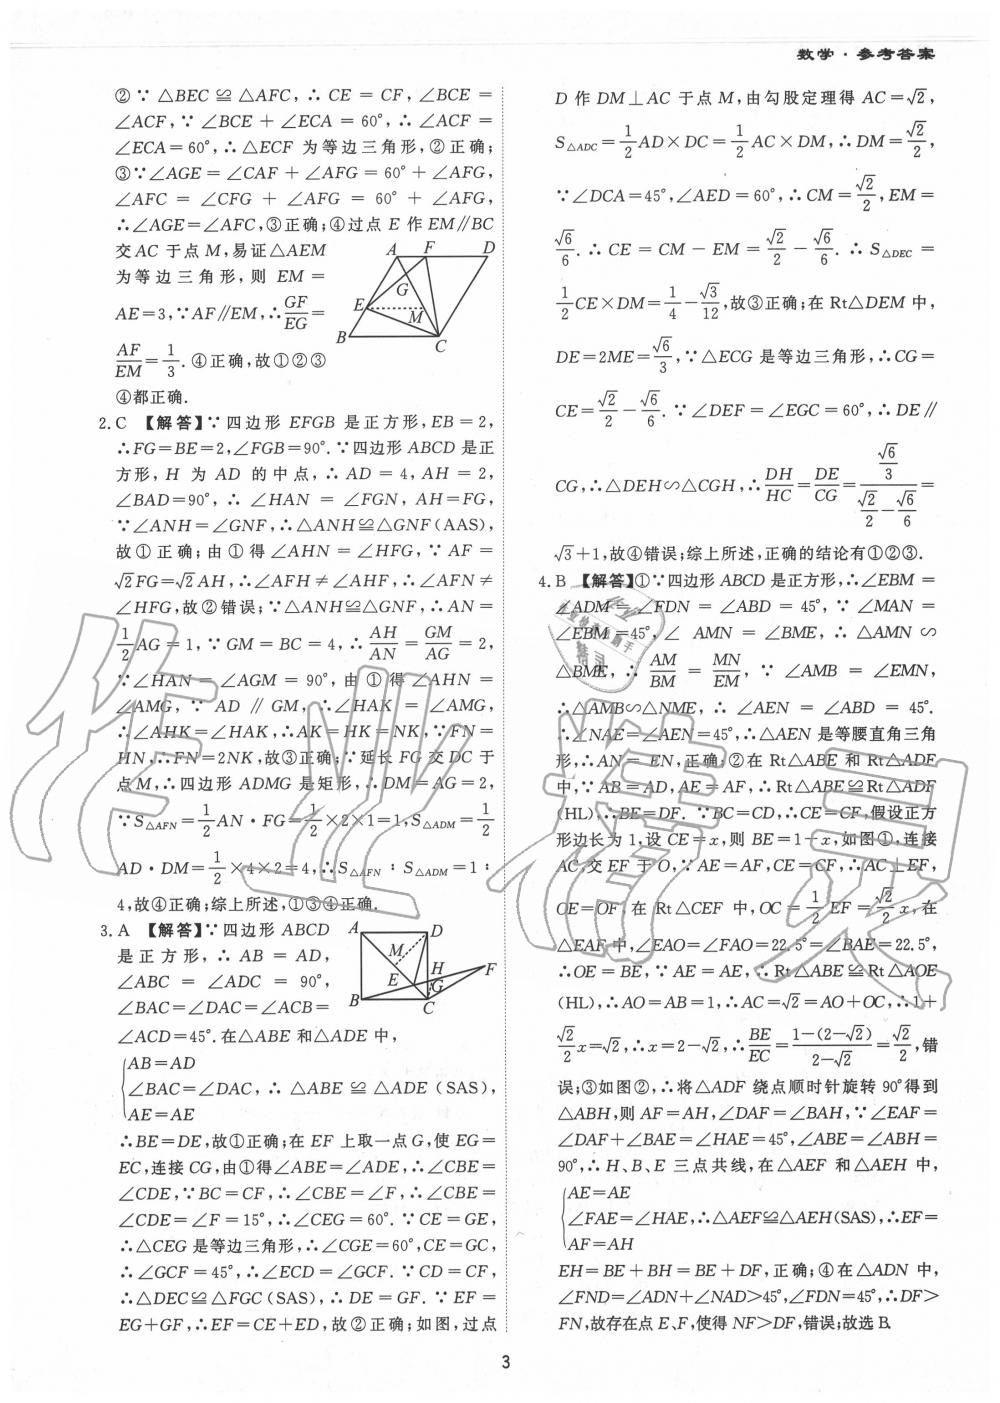 数学·参考答案
②∵△BEC≌△AFC,∴CE=CF,∠BCE=
∠ACF,∵∠BCE+∠ECA=60°,∴∠ACF=
∠ECA=60°,∴△ECF为等边三角形,②正确;
③∵∠AGE=∠CAF+∠AFG=60°+∠AFG,
∠AFC=∠CFG+∠AFG=60°+∠AFG,
∴∠AGE=∠AFC,③正确;④过点E作EM∥BC
交AC于点M,易证△AEM
为等边三角形,则EM=
AE=3,∵AF∥EM,∴GF/EG=
AF/EM=1/3.④正确,故①②③
④都正确.
A F D
G
E M
B C
2.C 【解答】∵四边形EFGB是正方形,EB=2,
∴FG=BE=2,∠FGB=90°.∵四边形ABCD是正
方形,H为AD的中点,∴AD=4,AH=2,
∠BAD=90°,∴∠HAN=∠FGN,AH=FG,
∵∠ANH=∠GNF,∴△ANH≌△GNF(AAS),
故①正确;由①得∠AHN=∠HFG,∵AF=
√2FG=√2AH,∴∠AFH≠∠AHF,∴∠AFN≠
∠HFG,故②错误;∵△ANH≌△GNF,∴AN=
1/2AG=1,∵GM=BC=4,∴AH/AN=GM/AG=2,
∵∠HAN=∠AGM=90°,由①得∠AHN=
∠AMG,∵AD∥GM,∴∠HAK=∠AMG,
∴∠AHK=∠HAK,∴AK=HK=NK,∵FN=
HN,∴FN=2NK,故③正确;∵延长FG交DC于
点M,∴四边形ADMG是矩形,∴DM=AG=2,
∵S△AFN=1/2AN·FG=1/2×2×1=1,S△ADM=1/2
AD·DM=1/2×4×2=4,∴S△AFN:S△ADM=1:
4,故④正确;综上所述,①③④正确.
3.A 【解答】∵四边形ABCD
是正方形,∴AB=AD,
∠ABC=∠ADC=90°,
∠BAC=∠DAC=∠ACB=
∠ACD=45°.在△ABE和△ADE中,
A D
M
H F
E G
B C
AB=AD
∠BAC=∠DAC,∴△ABE≌△ADE(SAS),
AE=AE
∴BE=DE,故①正确;在EF上取一点G,使EG=
EC,连接CG,由①得∠ABE=∠ADE,∴∠CBE=
∠CDE,∵BC=CF,∴∠CBE=∠F,∴∠CBE=
∠CDE=∠F=15°,∴∠CEG=60°.∵CE=GE,
∴△CEG是等边三角形,∴∠CGE=60°,CE=GC,
∴∠GCF=45°,∴∠ECD=∠GCF.∵CD=CF,
∴△DEC≌△FGC(SAS),∴DE=GF.∵EF=
EG+GF,∴EF=CE+ED,故②正确;如图,过点
D作DM⊥AC于点M,由勾股定理得AC=√2,
S△ADC=1/2AD×DC=1/2AC×DM,∴DM=√2/2,
∵∠DCA=45°,∠AED=60°,∴CM=√2/2,EM=
√6/6.∴CE=CM-EM=√2/2-√6/6.∴S△DEC=
1/2CE×DM=1/4-√3/12,故③正确;在Rt△DEM中,
DE=2ME=√6/3,∵△ECG是等边三角形,∴CG=
CE=√2/2-√6/6.∵∠DEF=∠EGC=60°,∴DE∥
CG,∴△DEH∽△CGH,∴DH/HC=DE/CG=(√6/3)/(√2/2-√6/6)=
√3+1,故④错误;综上所述,正确的结论有①②③.
4.B 【解答】①∵四边形ABCD是正方形,∴∠EBM=
∠ADM=∠FDN=∠ABD=45°,∵∠MAN=
∠EBM=45°,∠AMN=∠BME,∴△AMN∽
△BME,∴AM/BM=MN/EM,∵∠AMB=∠EMN,
∴△AMB∽△NME,∴∠AEN=∠ABD=45°.
∴∠NAE=∠AEN=45°,∴△AEN是等腰直角三角
形,∴AN=EN,正确;②在Rt△ABE和Rt△ADF
中,∵AB=AD,AE=AF,∴Rt△ABE≌Rt△ADF
(HL),∴BE=DF.∵BC=CD,∴CE=CF,假设正方
形边长为1,设CE=x,则BE=1-x,如图①,连接
AC,交EF于O,∵AE=AF,CE=CF,∴AC⊥EF,
OE=OF,在Rt△CEF中,OC=1/2EF=√2/2x,在
△EAF中,∠EAO=∠FAO=22.5°=∠BAE=22.5°,
∴OE=BE,∵AE=AE,∴Rt△ABE≌Rt△AOE
(HL),∴AO=AB=1,∴AC=√2=AO+OC,∴1+
√2/2x=√2,∴x=2-√2,∴BE/EC=(1-(2-√2))/(2-√2)=√2/2,错
误;③如图②,∴将△ADF绕点顺时针旋转90°得到
△ABH,则AF=AH,∠DAF=∠BAH,∵∠EAF=
∠DAF+∠BAE=∠HAE=45°,∠ABE=∠ABH=
90°,∴H、B、E三点共线,在△AEF和△AEH中,
AE=AE
∠FAE=∠HAE,∴△AEF≌△AEH(SAS),∴EF=
AF=AH
EH=BE+BH=BE+DF,正确;④在△ADN中,
∠FND=∠ADN+∠NAD>45°,∠FDN=45°,∴DF>
FN,故存在点E、F,使得NF>DF,错误;故选B.
3
作业精灵